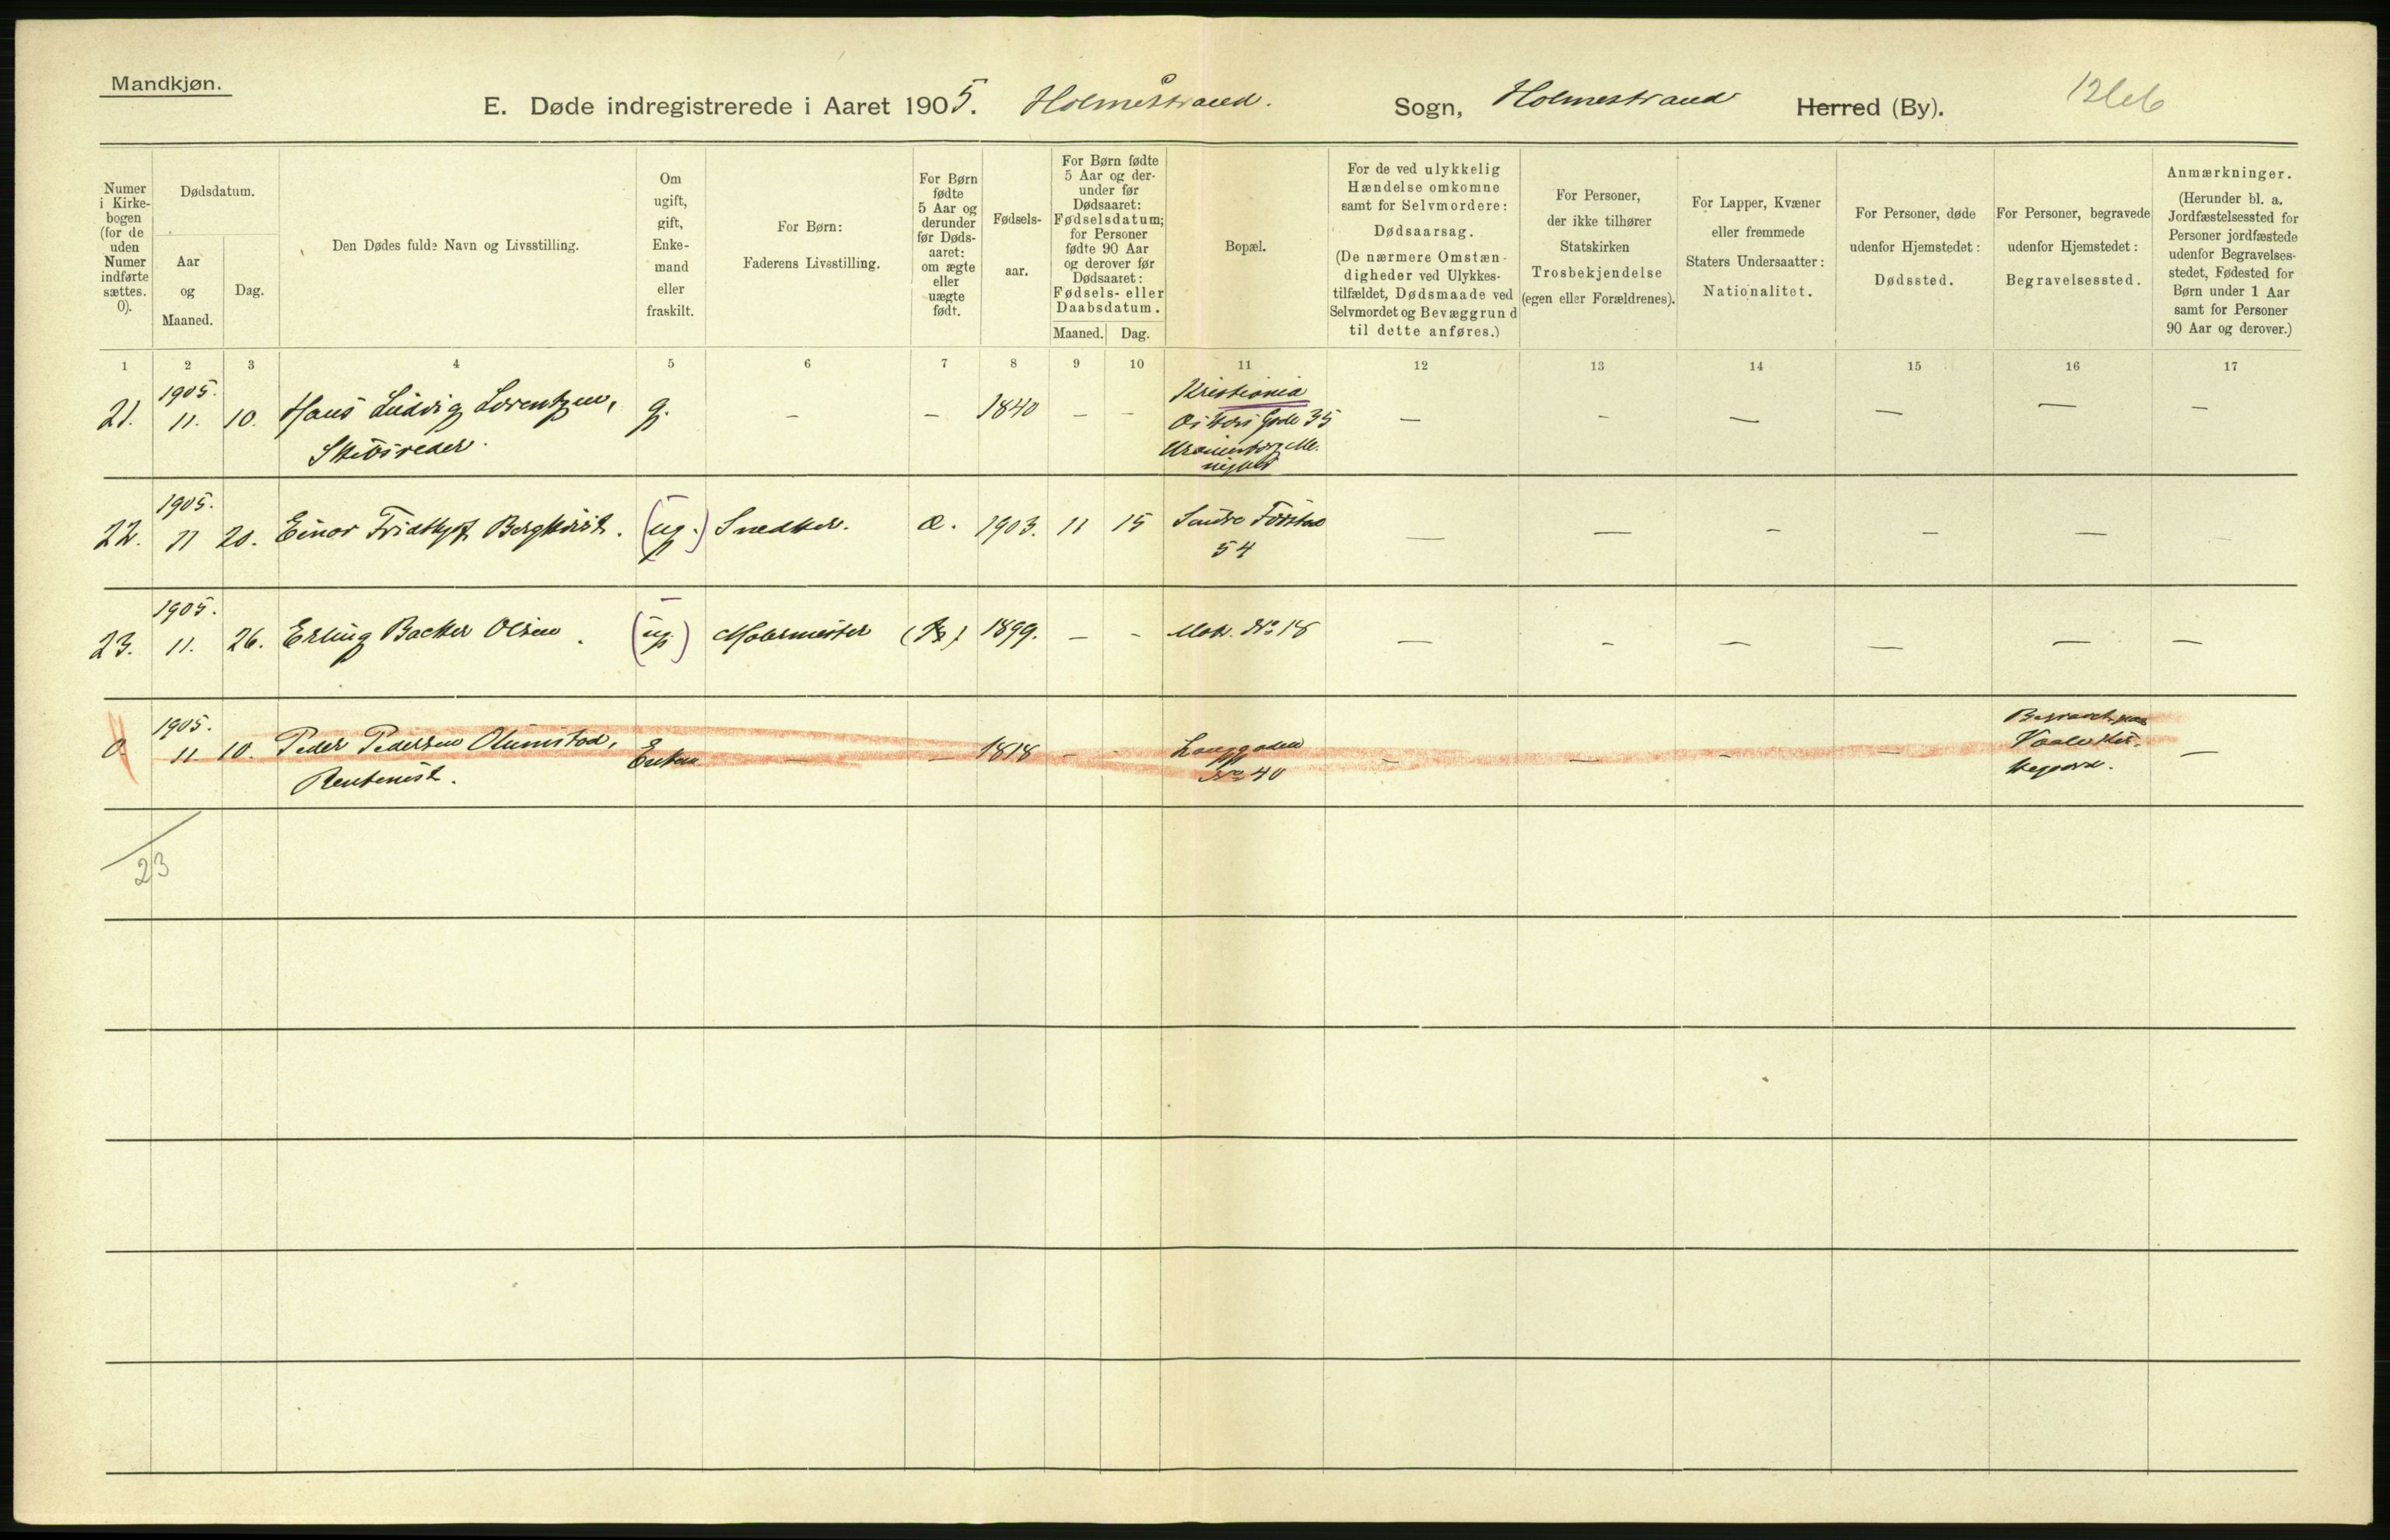 Mandkjøn.
E. Døde indregistrerede i Aaret 1905. Holmestrand. Sogn, Holmestrand Herred (By).
Numer i Kirkebogen (for de uden Numer indførte sættes. 0).
Dødsdatum.
Aar og Maaned.
Dag.
Den Dødes fulde Navn og Livsstilling.
Om ugift, gift, Enkemand eller fraskilt.
For Børn: Faderens Livsstilling.
For Børn fødte 5 Aar og derunder før Dødsaaret: om ægte eller uægte født.
Fødselsaar.
For Børn fødte 5 Aar og derunder før Dødsaaret: Fødselsdatum; for Personer fødte 90 Aar og derover før Dødsaaret: Fødsels- eller Daabsdatum.
Maaned. Dag.
Bopæl.
For de ved ulykkelig Hændelse omkomne samt for Selvmordere: Dødsaarsag. (De nærmere Omstændigheder ved Ulykkestilfældet, Dødsmaade ved Selvmordet og Bevæggrund til dette anføres.)
For Personer, der ikke tilhører Statskirken Trosbekjendelse (egen eller Forældrenes).
For Lapper, Kvæner eller fremmede Staters Undersaatter: Nationalitet.
For Personer, døde udenfor Hjemstedet: Dødssted.
For Personer, begravede udenfor Hjemstedet: Begravelsessted.
Anmærkninger. (Herunder bl. a. Jordfæstelsessted for Personer jordfæstede udenfor Begravelsesstedet, Fødested for Børn under 1 Aar samt for Personer 90 Aar og derover.)
1 2 3 4 5 6 7 8 9 10 11 12 13 14 15 16 17
1905. Kristiania
21. 11. 10. Hans Ludvig Lorentzen, g. – – 1840 – – Gade 35 – – – – – –
Skibsreder.
1905.
22. 11 20. Einar Fridthjof Bergkvist. (ug.) Snedker. Æ. 1903. 11 15 Søndre
54 – – – – –
1905.
23. 11. 26. Erling Backer Olsen. (ug.) (Æ) 1899. – – Matr. No 18 – – – – – –
1905.
0. 11. 10. Peder Pedersen Olumstad, Enkem. – – 1818 – – Langgaden – – – – Vaale –
Rentenist. No 40
23